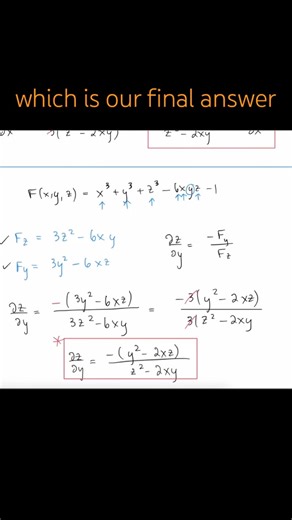 which is our final answer
∂x 3(z² - 2xy) z² - 2xy ∂x
F(x,y,z) = x³ + y³ + z³ - 6xyz - 1
✓ F_z = 3z² - 6xy ∂z/∂y = -F_y/F_z
✓ F_y = 3y² - 6xz
∂z/∂y = -(3y² - 6xz)/(3z² - 6xy) = -3(y² - 2xz)/(3(z² - 2xy))
* ∂z/∂y = -(y² - 2xz)/(z² - 2xy)